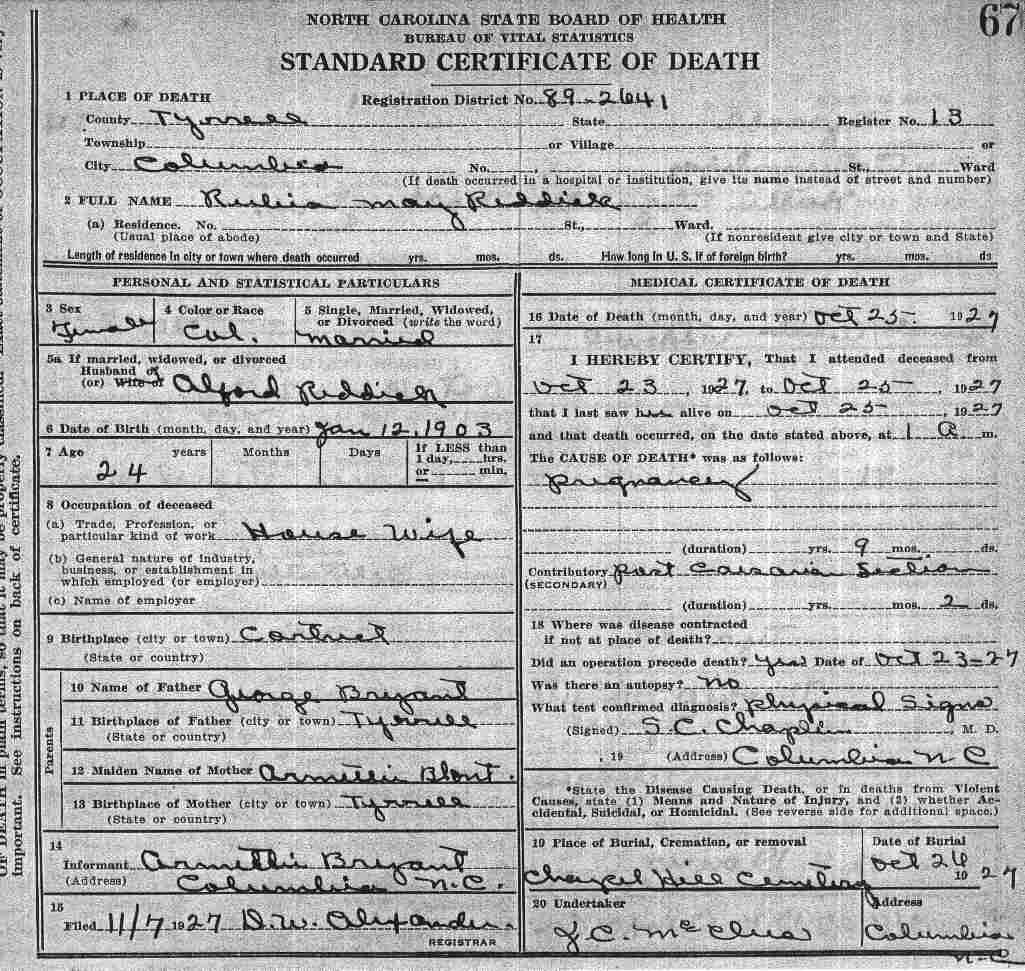 67
NORTH CAROLINA STATE BOARD OF HEALTH
BUREAU OF VITAL STATISTICS
STANDARD CERTIFICATE OF DEATH
1 PLACE OF DEATH Registration District No. 89-2641
County Tyrrell State Register No. 13
Township or Village or
City Columbia No. , St., Ward
(If death occurred in a hospital or institution, give its name instead of street and number)
2 FULL NAME May Reddick
(a) Residence. No. St., Ward.
(Usual place of abode) (If nonresident give city or town and State)
Length of residence in city or town where death occurred yrs. mos. ds. How long in U. S. if of foreign birth? yrs. mos. ds
PERSONAL AND STATISTICAL PARTICULARS
3 Sex 4 Color or Race 5 Single, Married, Widowed,
or Divorced (write the word)
Female Col. Married
5a If married, widowed, or divorced
Husband of
(or) Wife of Alford Reddick
6 Date of Birth (month, day, and year) Jan 12, 1903
7 Age years Months Days If LESS than
1 day, hrs.
or min.
24
8 Occupation of deceased
(a) Trade, Profession, or
particular kind of work House Wife
(b) General nature of industry,
business, or establishment in
which employed (or employer)
(c) Name of employer
9 Birthplace (city or town)
(State or country)
Parents
10 Name of Father George Bryant
11 Birthplace of Father (city or town) Tyrrell
(State or country)
12 Maiden Name of Mother Armettii Blont.
13 Birthplace of Mother (city or town) Tyrrell
(State or country)
14
Informant Armettii Bryant
(Address) Columbia N.C.
15
Filed 11/7 1927 D.W. Alexander.
REGISTRAR
MEDICAL CERTIFICATE OF DEATH
16 Date of Death (month, day, and year) Oct 25- 1927
17
I HEREBY CERTIFY, That I attended deceased from
Oct 23, 1927, to Oct 25, 1927
that I last saw her alive on Oct 25, 1927
and that death occurred, on the date stated above, at 1 A m.
The CAUSE OF DEATH* was as follows:
Pregnancy
(duration) yrs. 9 mos. ds.
Contributory Post Section
(SECONDARY)
(duration) yrs. mos. 2 ds.
18 Where was disease contracted
if not at place of death?
Did an operation precede death? Yes Date of Oct 23-27
Was there an autopsy? No
What test confirmed diagnosis? Physical Signs
(Signed) S.C. Chaplin, M. D.
, 19 (Address) Columbia N C
*State the Disease Causing Death, or in deaths from Violent
Causes, state (1) Means and Nature of Injury, and (2) whether Ac-
cidental, Suicidal, or Homicidal. (See reverse side for additional space.)
19 Place of Burial, Cremation, or removal Date of Burial
Chapel Hill Cemetery Oct 26 1927
20 Undertaker Address
J.C. Columbia
N-C
important. See instructions on back of certificate.